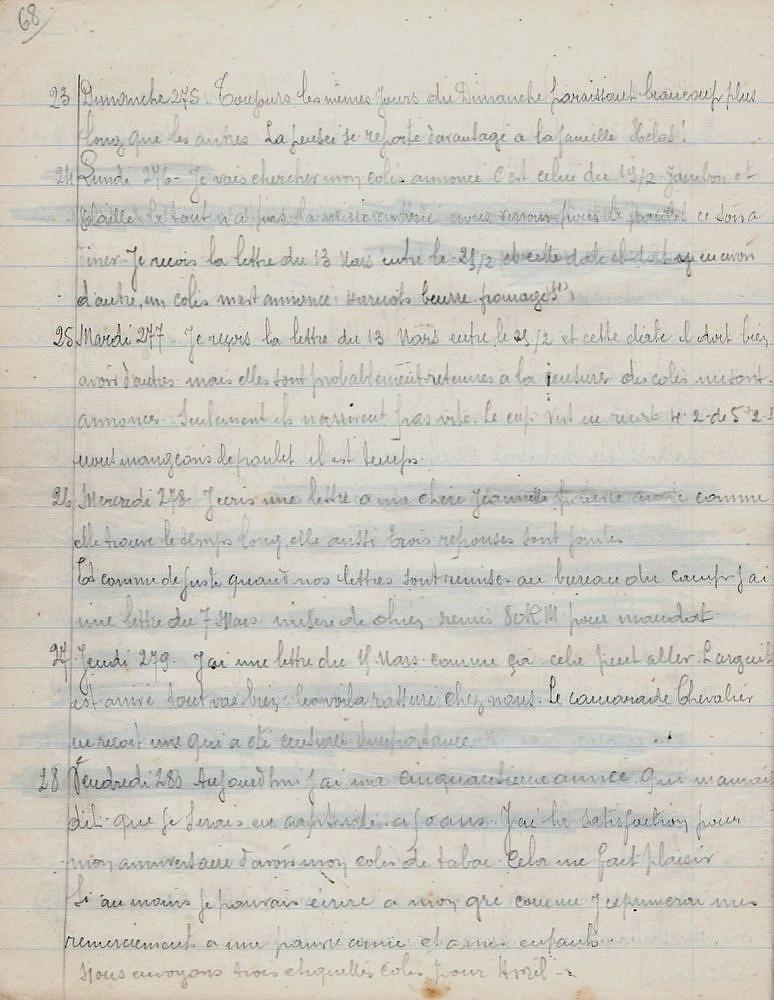 68
23 Dimanche 275. Toujours les mêmes jours du Dimanche paraissent beaucoup plus
long que les autres. La pensée se reporte davantage a la famille Helas!
24 Lundi 276 - Je vais chercher mon colis annonce C'est celui du 19/2 Jambon et
le tout n'a pas nous verrons pour le ce soir a
diner. Je reçois la lettre du 13 Mars entre le 25/2 et cette date il doit y en avoir
d'autre, un colis m'est annonce haricots beurre fromages
25 Mardi 277. Je reçois la lettre du 13 Mars entre le 25/2 et cette date il doit bien
avoir d'autres mais elles sont probablement retenues a la censure des colis me sont
annonces. Seulement ils n'arrivent pas vite. Le
nous mangeons le poulet il est temps.
26 Mercredi 278. J'ecris une lettre a ma chère Jeannette comme
elle trouve le temps long, elle aussi trois reponses sont jointes
Et comme de juste quand nos lettres sont remises au bureau du camp j'ai
une lettre du 7 Mars. misère de remis 80 RM pour mandat
27 Jeudi 279. J'ai une lettre du Mars. comme ça cela peut aller L'argent
est arrivé tout vas bien les voila rassuré chez nous. Le camarade Chevalier
en reçoit une qui a ete censuree
28 Vendredi 280 Aujourd'hui j'ai ma cinquantieme année. Qui m'aurait
dit que je serais en a 50 ans. J'ai la satisfaction pour
mon anniversaire d'avoir mon colis de tabac. Cela me fait plaisir
Si au moins je pouvais écrire a mon gré comme j'exprimerai mes
remerciements a une pauvre amie et a mes enfants.
Nous envoyons trois etiquettes colis pour Avril -